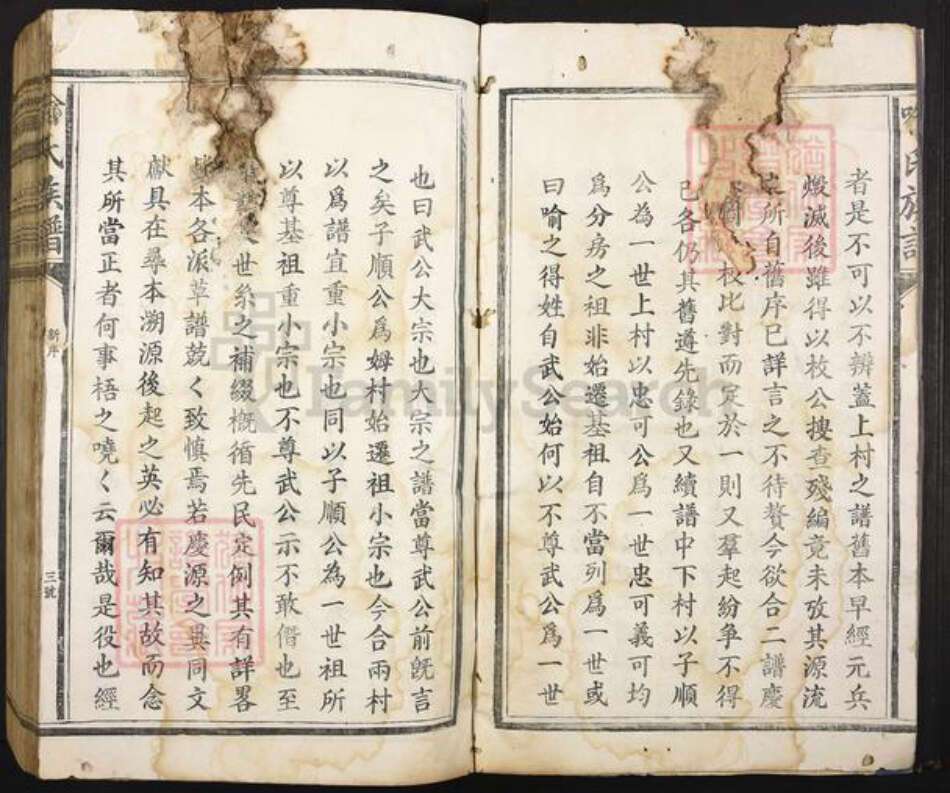 者是不可以不辨蓋上村之譜舊本早經元兵
燬滅後雖得以枚公搜查殘編竟未攷其源流
所自舊序已詳言之不待贅今欲合二譜慶
枚比對而定於一則又羣起紛爭不得
已各仍其舊遵先錄也又續譜中下村以子順
公為一世上村以忠可公爲一世忠可義可均
爲分房之祖非始遷基祖自不當列爲一世或
曰喻之得姓自武公始何以不尊武公爲一世
也曰武公大宗也大宗之譜當尊武公前旣言
之矣子順公爲姆村始遷祖小宗也今合兩村
以爲譜宜重小宗也同以子順公為一世祖所
以尊基祖重小宗也不尊武公示不敢僭也至
世系之補綴槪循先民定例其有詳畧
本各派草譜兢く致慎焉若慶源之異同文
獻具在尋本溯源後起之英必有知其故而念
其所當正者何事梧之嘵く云爾哉是役也經
氏族譜
新序
三號
FamilySearch